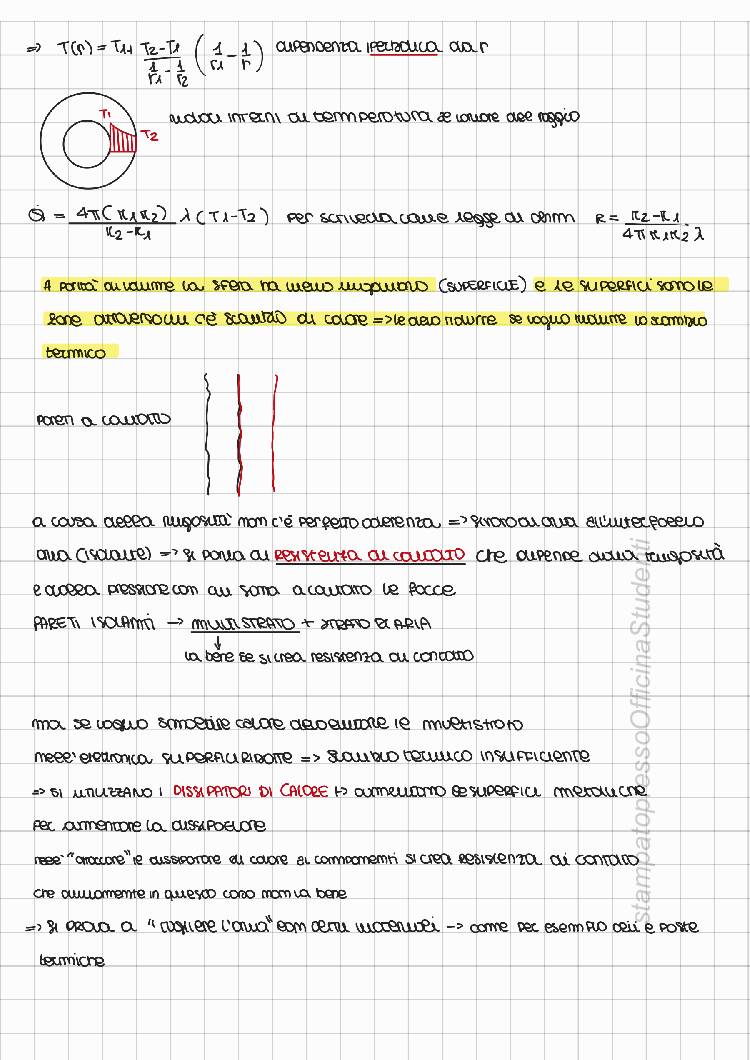 => T(r) = T1+ T2-T1 / (1/r1 - 1/r2) (1/r1 - 1/r) dipendenza iperbolica da r
T1
T2
valori interni di temperatura al valore del raggio
Q̇ = 4π(r1 r2) / (r2-r1) λ (T1-T2) per scriverla come legge di ohm R = r2-r1 / (4π r1 r2 · λ)
A parità di volume la sfera ha meno (SUPERFICIE) e le SUPERFICI sono le
zone attraverso cui c'è scambio di calore => le devo ridurre se voglio ridurre lo scambio
termico
Pareti a contatto
a causa della rugosità non c'è perfetto aderenza => strato di aria all'interfaccia
aria (isolante) => si parla di RESISTENZA DI CONTATTO che dipende dalla rugosità
e dalla pressione con cui sono a contatto le facce
PARETI ISOLANTI → MULTISTRATO + STRATO DI ARIA
va bene se si crea resistenza di contatto
ma se voglio smaltire calore devo evitare le multistrato
nell'elettronica SUPERFICI RIDOTTE => scambio termico INSUFFICIENTE
=> SI UTILIZZANO I DISSIPATORI DI CALORE ↦ aumentano le superfici metalliche
per aumentare la dissipazione
nell' "attaccare" il dissipatore di calore ai componenti si crea resistenza di contatto
che ovviamente in questo caso non va bene
=> si prova a "togliere l'aria" con certi materiali → come per esempio oli e paste
termiche
stampatopressoOfficinaStudenti